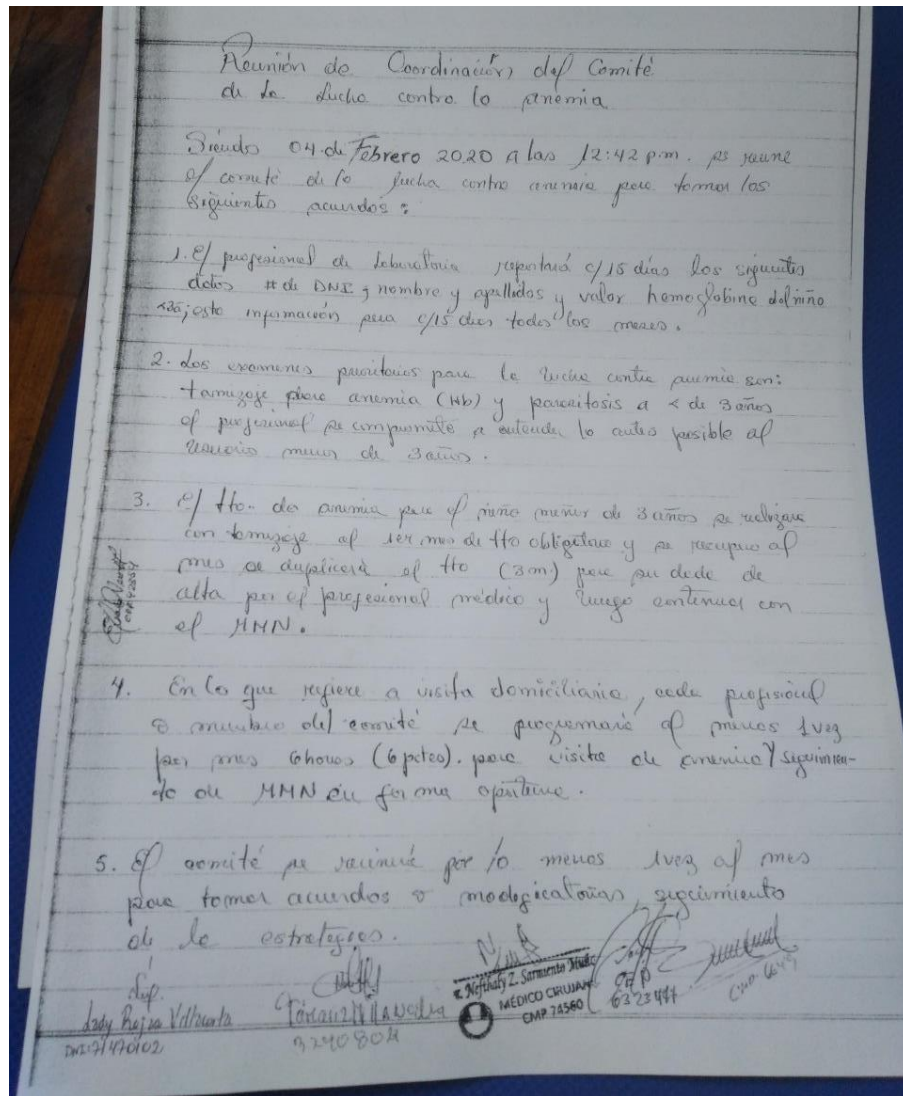 Reunión de Coordinación del Comité
de la lucha contra la anemia
Siendo 04 de Febrero 2020 a las 12:42 p.m. se reune
el comité de la lucha contra anemia para tomar los
siguientes acuerdos:
1. El profesional de laboratorio reportará c/15 días los siguientes
datos # de DNI, nombre y apellidos y valor hemoglobina del niño
<3a; esta información será c/15 dias todos los meses.
2. Los examenes prioritarios para la lucha contra anemia son:
tamizaje para anemia (Hb) y parasitosis a < de 3 años
el profesional se compromete a atender lo antes posible al
usuario menor de 3 años.
3. El tto. de anemia para el niño menor de 3 años se realizara
con tamizaje al 1er mes de tto obligatorio y se recupero al
mes se duplicará el tto (3m) para su dede de
alta por el profesional médico y luego continua con
el MMN.
4. En lo que refiere a visita domiciliaria, cada profesional
o miembro del comité se programará al menos 1 vez
por mes 6 horas (6 pctes). para visita de anemia y seguimien-
to de MMN en forma oportuna.
5. El comité se reunirá por lo menos 1 vez al mes
para tomar acuerdos o modificatorias, seguimiento
de la estrategias.
Nefthaly Z. Sarmiento
MÉDICO CIRUJANO
CMP 74560
COP
Lady Rojas Villanueva
DNI: 71470102